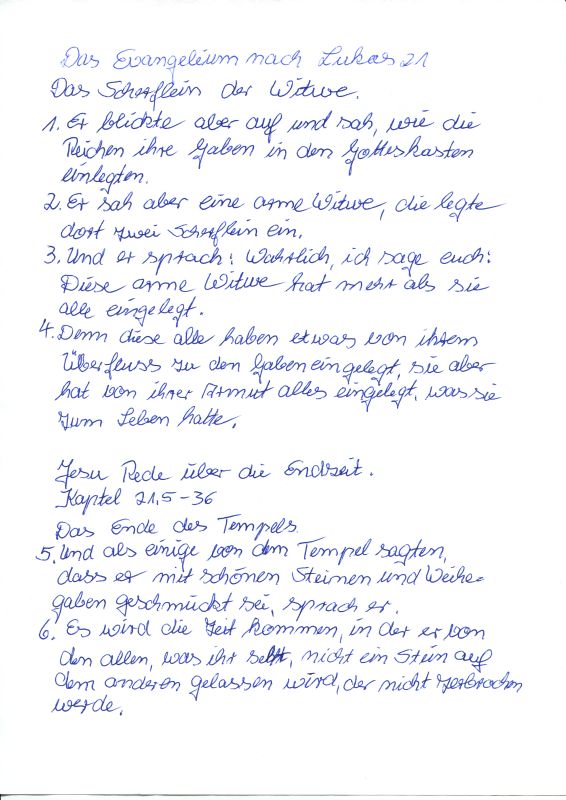 Das Evangelium nach Lukas 21
Das Scherflein der Witwe.
1. Er blickte aber auf und sah, wie die
Reichen ihre Gaben in den Gotteskasten
einlegten.
2. Er sah aber eine arme Witwe, die legte
dort zwei Scherflein ein.
3. Und er sprach: Wahrlich, ich sage euch:
Diese arme Witwe hat mehr als sie
alle eingelegt.
4. Denn diese alle haben etwas von ihrem
Überfluss zu den Gaben eingelegt, sie aber
hat von ihrer Armut alles eingelegt, was sie
zum Leben hatte.
Jesu Rede über die Endzeit.
Kaptel 21,5-36
Das Ende des Tempels.
5. Und als einige von dem Tempel sagten,
dass er mit schönen Steinen und Weihe-
gaben geschmückt sei, sprach er.
6. Es wird die Zeit kommen, in der er von
den allen, was ihr seht, nicht ein Stein auf
dem anderen gelassen wird, der nicht zerbrochen
werde.